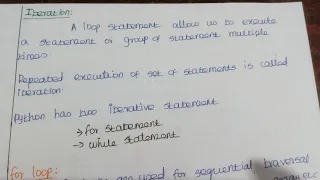 Iteration:
A loop statement allow us to execute
a statement or group of statement multiple
times
Repeated execution of set of statements is called
iteration.
Python has two iterative statement
→ for statement
→ while statement
for loop:
are used for sequential traversal